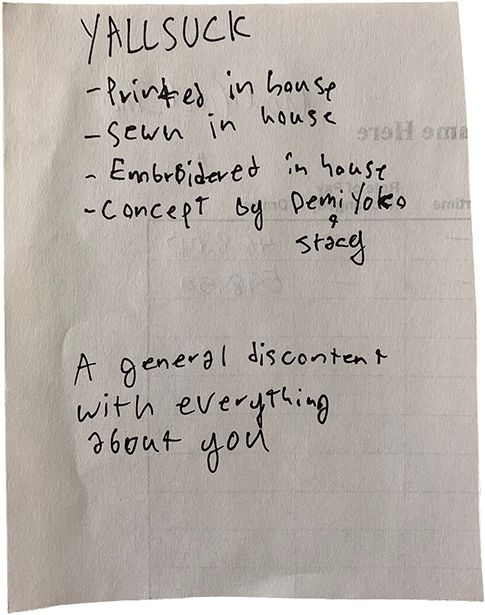 YALLSUCK
- Printed in house
- Sewn in house
- Embroidered in house
- Concept by Demi Yoko
&
Stacy
A general discontent
with everything
about you